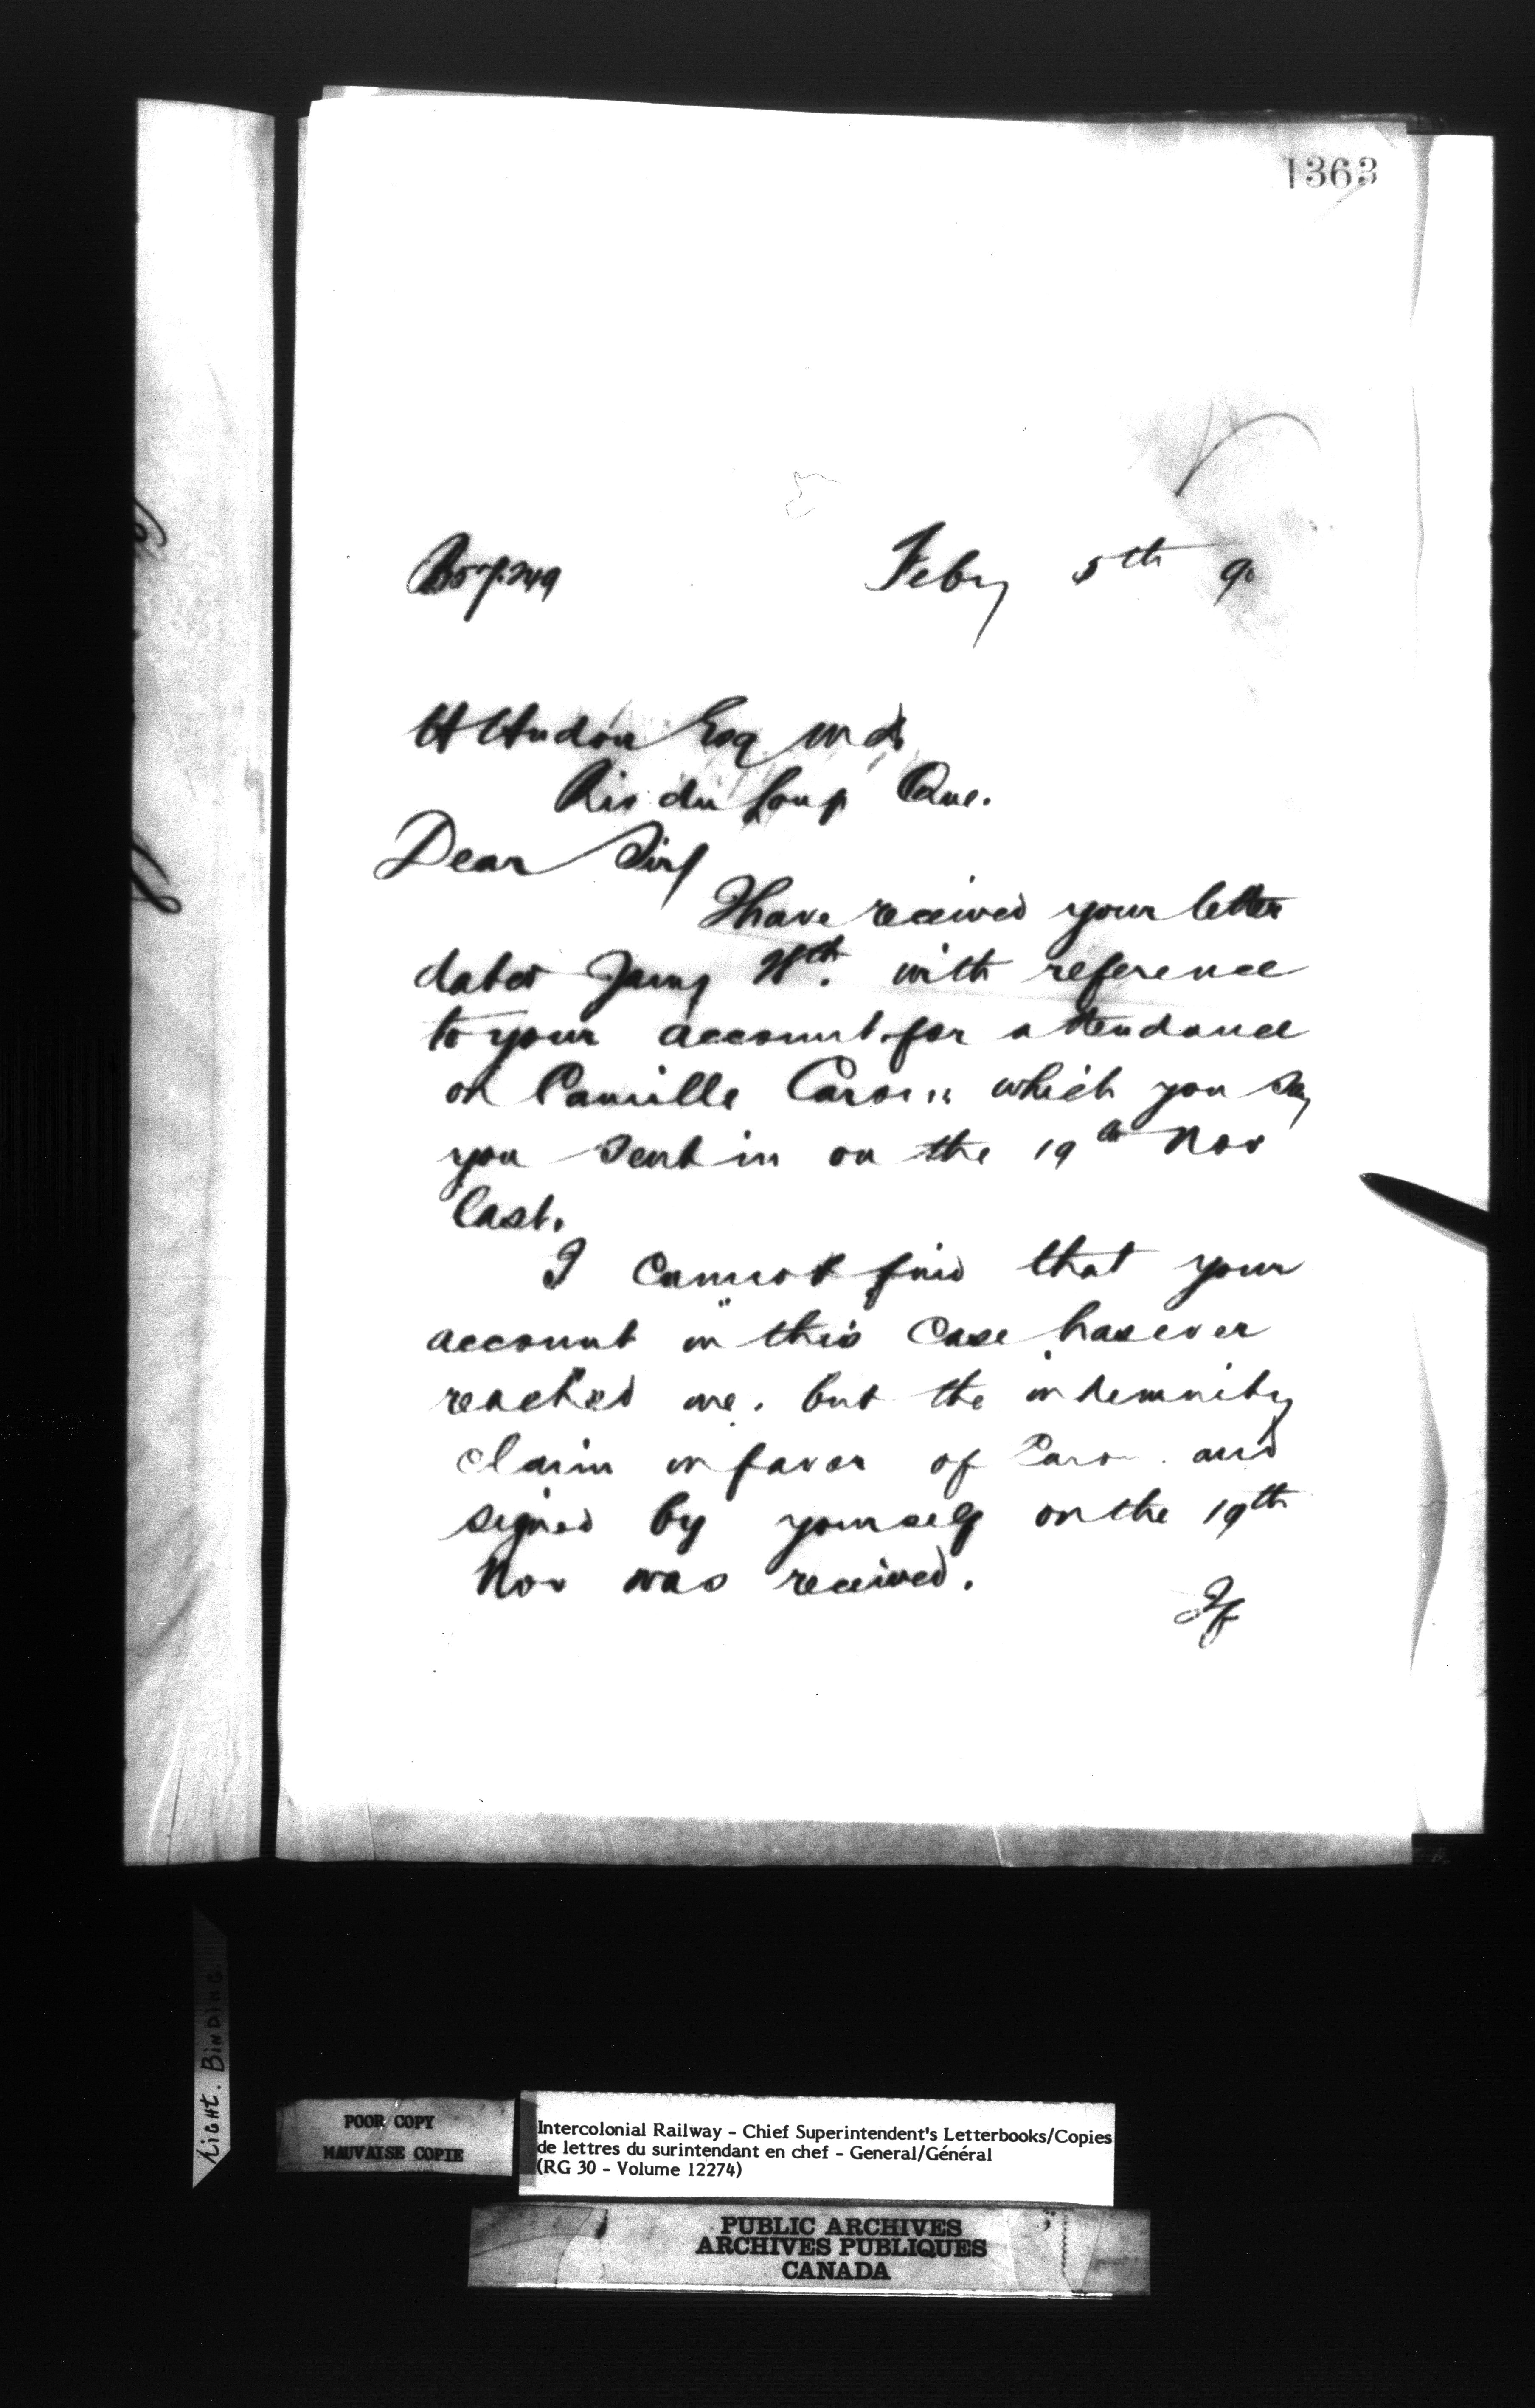 1363
Feby 5th 90
H Hudon Esq M D,
Riv du Loup Que.
Dear Sir/
I have received your letter
dated Jany 28th. with reference
to your account for attendance
on Camille Caron which you say
you sent in on the 19th Nov
last.
I cannot find that your
account in this case has ever
reached me. but the indemnity
claim in favor of Caron and
signed by yourself on the 19th
Nov was received.
If
Light. BINDING
POOR COPY
MAUVAISE COPIE
Intercolonial Railway - Chief Superintendent's Letterbooks/Copies
de lettres du surintendant en chef - General/Général
(RG 30 - Volume 12274)
PUBLIC ARCHIVES
ARCHIVES PUBLIQUES
CANADA